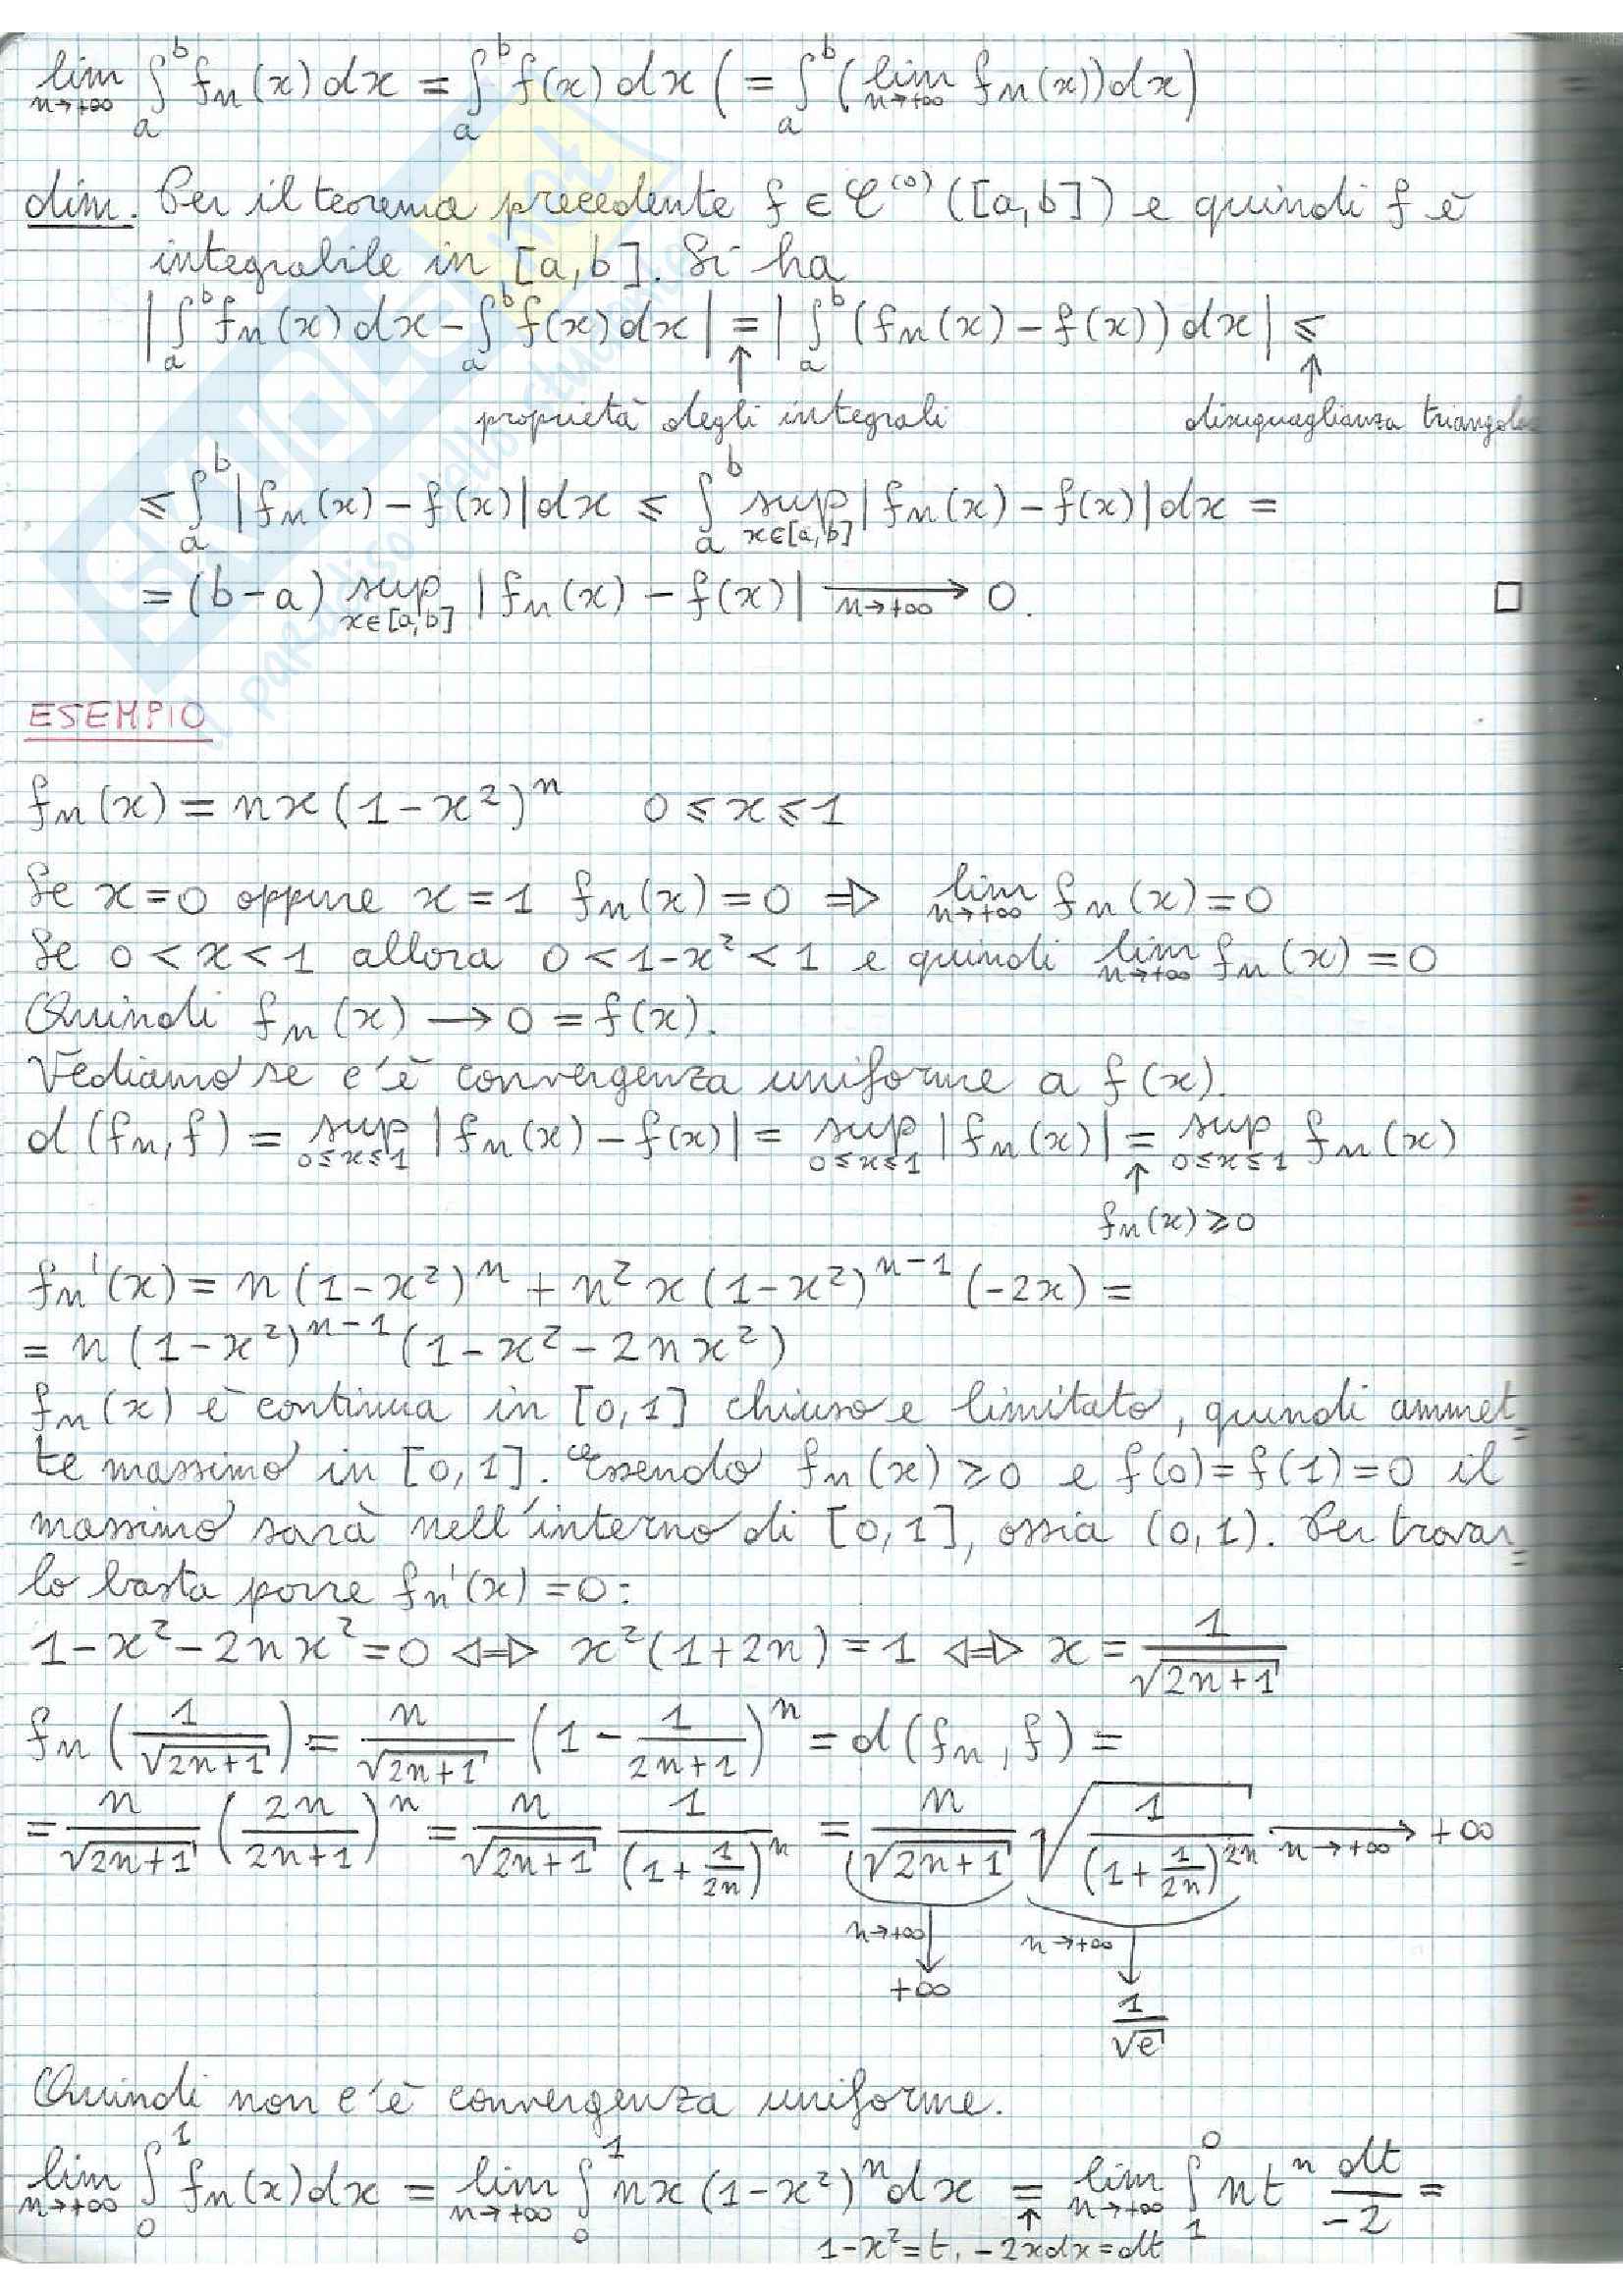 lim n→+∞ ∫_a^b fn(x)dx = ∫_a^b f(x)dx (= ∫_a^b (lim n→+∞ fn(x))dx)
dim. Per il teorema precedente f ∈ C^(0)([a,b]) e quindi f è
integrabile in [a,b]. Si ha
|∫_a^b fn(x)dx - ∫_a^b f(x)dx| = |∫_a^b (fn(x) - f(x))dx| ≤
↑ ↑
proprietà degli integrali disuguaglianza
≤ ∫_a^b |fn(x) - f(x)|dx ≤ ∫_a^b sup x∈[a,b] |fn(x) - f(x)|dx =
= (b-a) sup x∈[a,b] |fn(x) - f(x)| ⟶ n→+∞ 0. □
ESEMPIO
fn(x) = nx(1-x²)^n 0≤x≤1
Se x=0 oppure x=1 fn(x)=0 ⇒ lim n→+∞ fn(x)=0
Se 0<x<1 allora 0<1-x²<1 e quindi lim n→+∞ fn(x)=0
Quindi fn(x) → 0 = f(x).
Vediamo se c'è convergenza uniforme a f(x).
d(fn,f) = sup 0≤x≤1 |fn(x) - f(x)| = sup 0≤x≤1 |fn(x)| = sup 0≤x≤1 fn(x)
↑
fn(x)≥0
fn'(x) = n(1-x²)^n + n²x(1-x²)^(n-1)(-2x) =
= n(1-x²)^(n-1)(1-x²-2nx²)
fn(x) è continua in [0,1] chiuso e limitato, quindi ammet=
te massimo in [0,1]. Essendo fn(x)≥0 e f(0)=f(1)=0 il
massimo sarà nell'interno di [0,1], ossia (0,1). Per trovar=
lo basta porre fn'(x)=0:
1-x²-2nx²=0 ⇔ x²(1+2n)=1 ⇔ x = 1/√(2n+1)
fn(1/√(2n+1)) = n/√(2n+1) (1 - 1/(2n+1))^n = d(fn,f) =
= n/√(2n+1) (2n/(2n+1))^n = n/√(2n+1) 1/(1+1/2n)^n = n/√(2n+1) · √(1/(1+1/2n)^2n) ⟶ n→+∞ +∞
n→+∞ ↓ n→+∞ ↓
+∞ 1/√e
Quindi non c'è convergenza uniforme.
lim n→+∞ ∫_0^1 fn(x)dx = lim n→+∞ ∫_0^1 nx(1-x²)^n dx = lim n→+∞ ∫_1^0 nt^n dt/-2 =
↑
1-x²=t, -2xdx=dt
SKUOLA.net
il paradiso dello studente